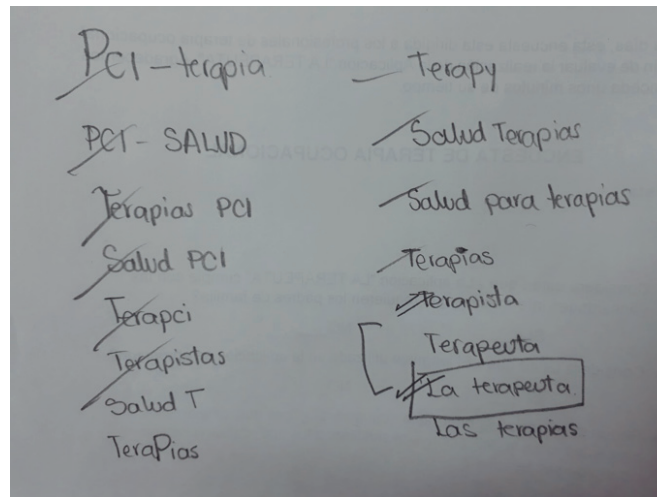 PCI - terapia
PCI - SALUD
Terapias PCI
Salud PCI
Terapci
Terapistas
Salud T
TeraPias
Terapy
Salud Terapias
Salud para terapias
Terapias
Terapista
Terapeuta
La terapeuta.
Las terapias